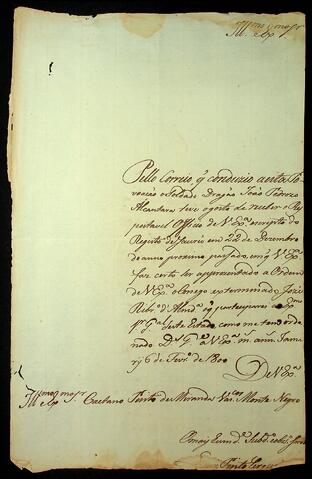 Ill.mo e Ex.mo Snr
Pello Correio, q conduzio a esta Po
voação o Soldado Dragão João Pedrozo
Alcantara tive o gosto de receber o Res
peitavel Officio de V. Ex.ª escripto do
Registo de Jaurú em 22 de Dezembro
do anno proximo passado, em q V. Ex.ª
faz certo ser apprezentado a Ordem
de V. Ex.ª o Conego exterminado José
Ribr.º d Almd.ª q participarei ao Ex.mo
Gn.al deste Estado como me tem orde
nado D.s G.e a V. Ex.ª m. ann.
6 de Fevr.º de 1800
De V. Ex.ª
Ill.mo e Ex.mo Snr Caetano Pinto de Miranda Vas.cos Monte Negro
O mais Subd.º
Pinto